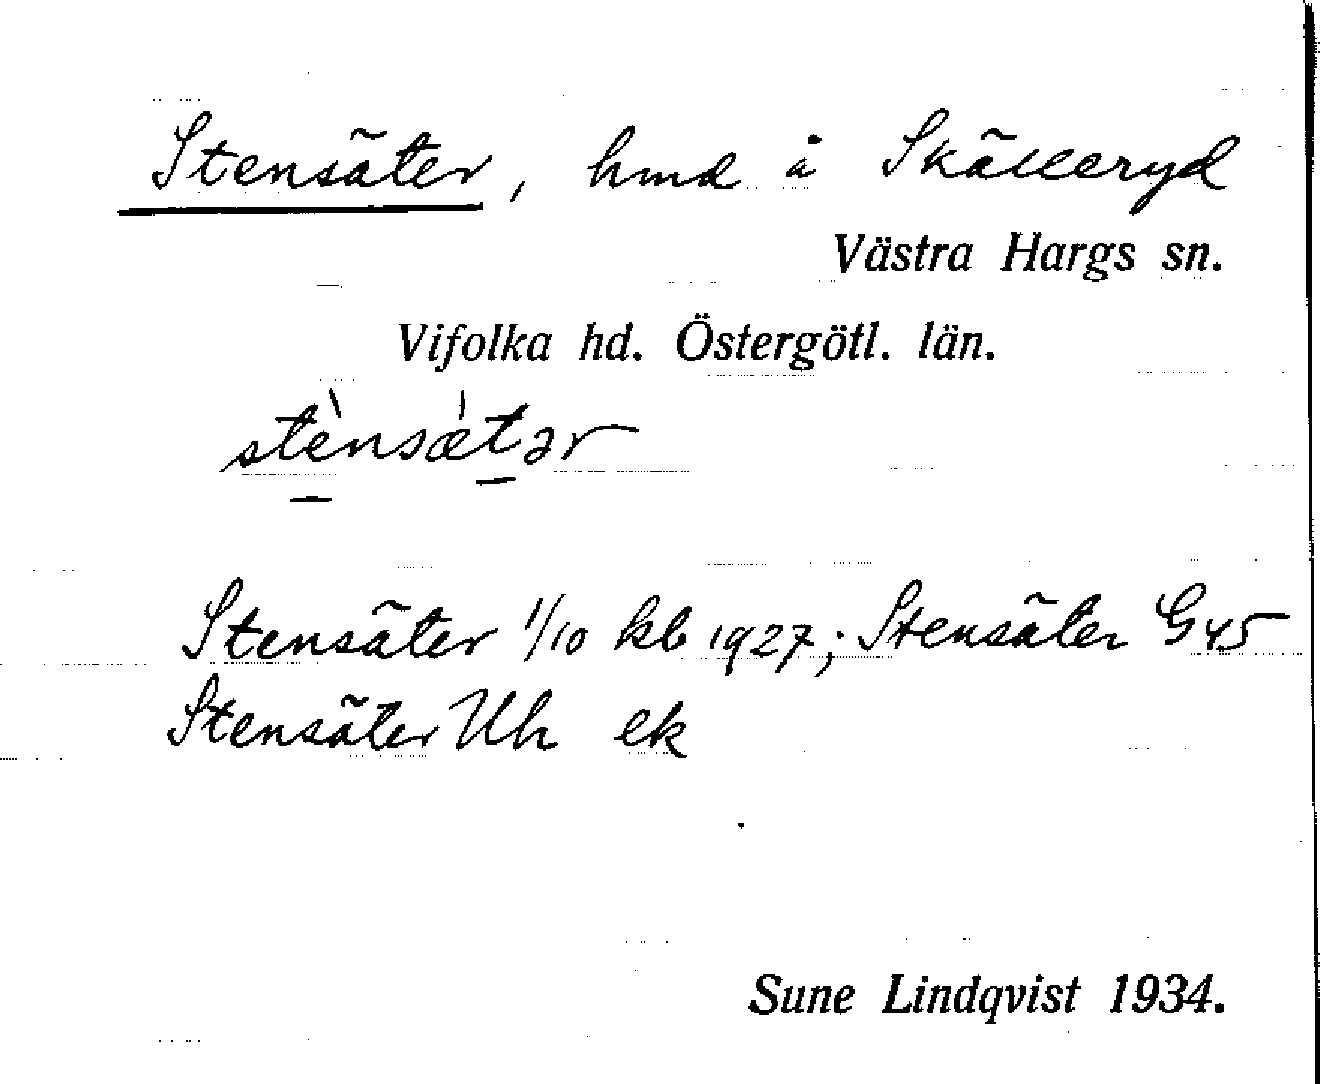 Stensäter, hmd å Skälleryd
Västra Hargs sn.
Vifolka hd. Östergötl. län.
stènsæ̀tər
Stensäter 1/10 kb 1927; Stensäter G45
Stensäter Uh ek
Sune Lindqvist 1934.